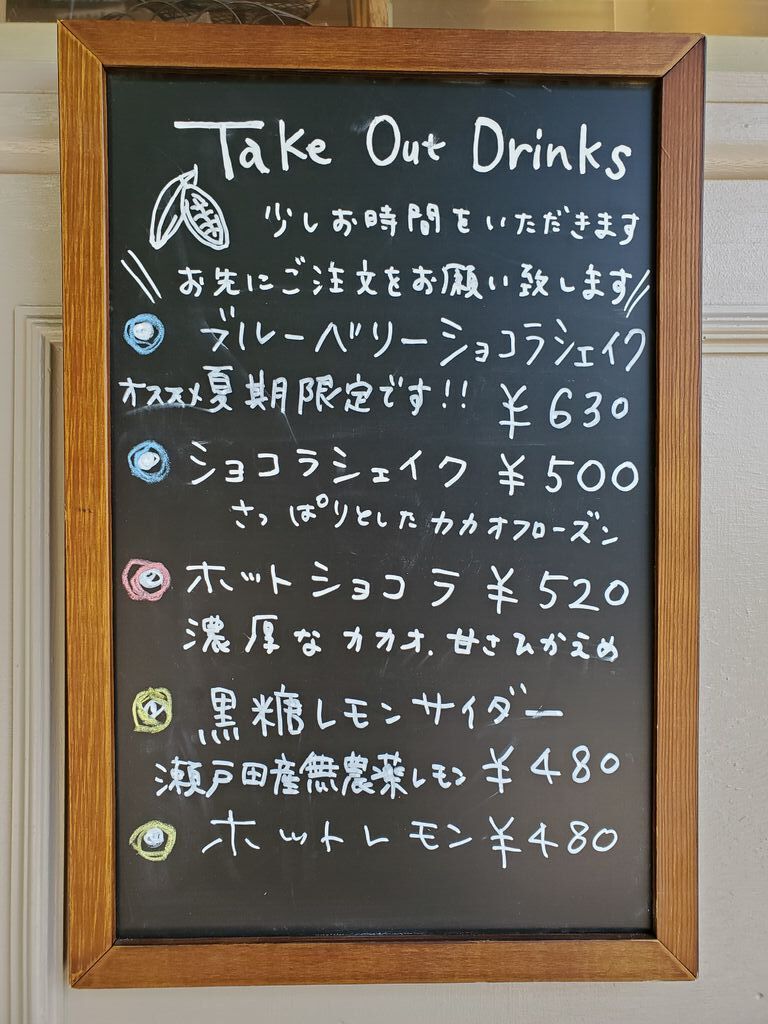 Take Out Drinks
少しお時間をいただきます
お先にご注文をお願い致します
ブルーベリーショコラシェイク
オススメ夏期限定です!! ¥630
ショコラシェイク ¥500
さっぱりとしたカカオフローズン
ホットショコラ ¥520
濃厚なカカオ.甘さひかえめ
黒糖レモンサイダー
瀬戸田産無農薬レモン ¥480
ホットレモン ¥480